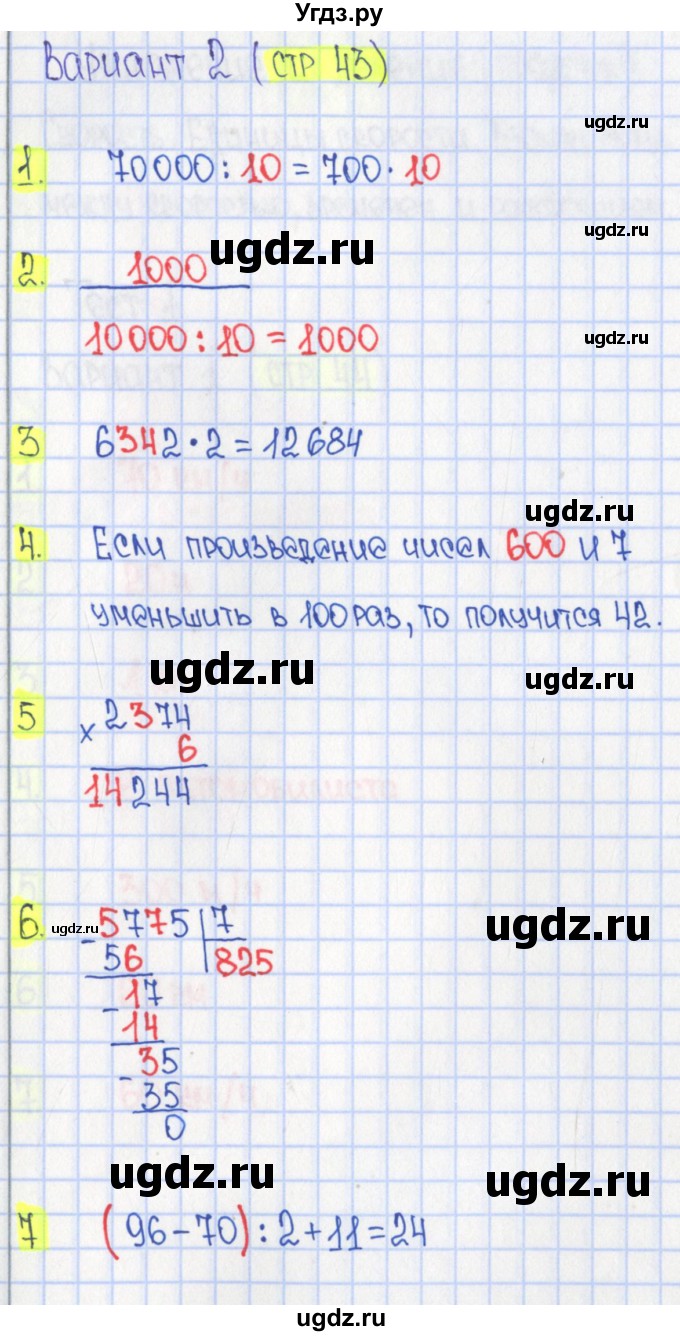 Угдз.ру
Вариант 2 (стр 43)
ugdz.ru
1. 70000 : 10 = 700 · 10
ugdz.ru
ugdz.ru
2. 1000
10000 : 10 = 1000
ugdz.ru
3 6342 · 2 = 12684
ugdz.ru
4. Если произведение чисел 600 и 7
уменьшить в 100 раз, то получится 42.
ugdz.ru
ugdz.ru
5 × 2374
6
14244
6. ugdz.ru - 5775 | 7
ugdz.ru
56 825
17
- 14
35
- 35
0
ugdz.ru
ugdz.ru
7 (96 - 70) : 2 + 11 = 24
ugdz.ru